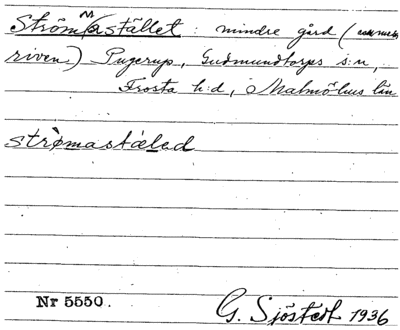 Strömmastället : mindre gård (numera
riven) Pugerup, Gudmundtorps s:n,
Frosta h:d, Malmöhus län
strømastæled
Nr 5550.
G. Sjöstedt 1936